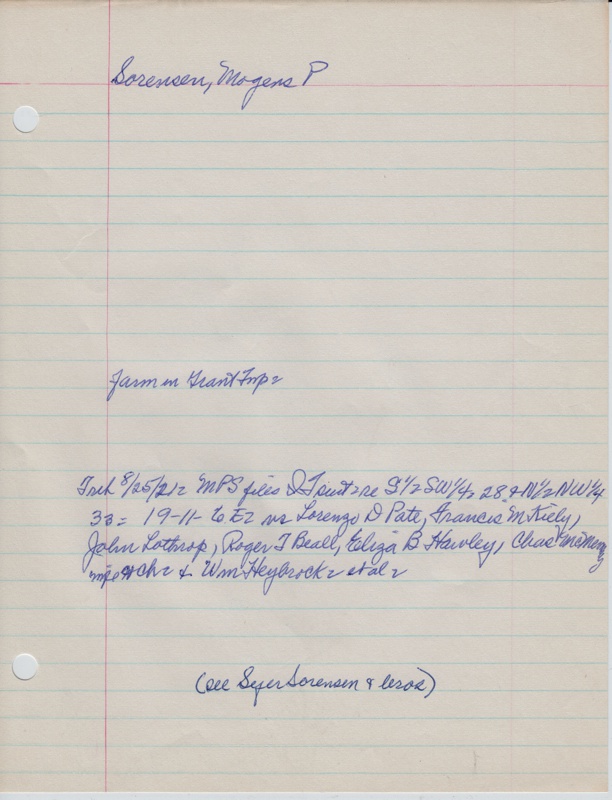 Sorensen, Mogens P
Farm in Grant Twp =
Trib 8/25/21 = MPS files Q T suit = re S 1/2 SW 1/4 = 28 & N 1/2 NW 1/4
33 = 19-11- E = vs Lorenzo D Pate, Francis M Kiely,
John Lothrop, Roger T Beall, Eliza B Hawley, Chas
& Ch = & Wm Heybrock = et al =
(see Sejer Sorensen & bros)